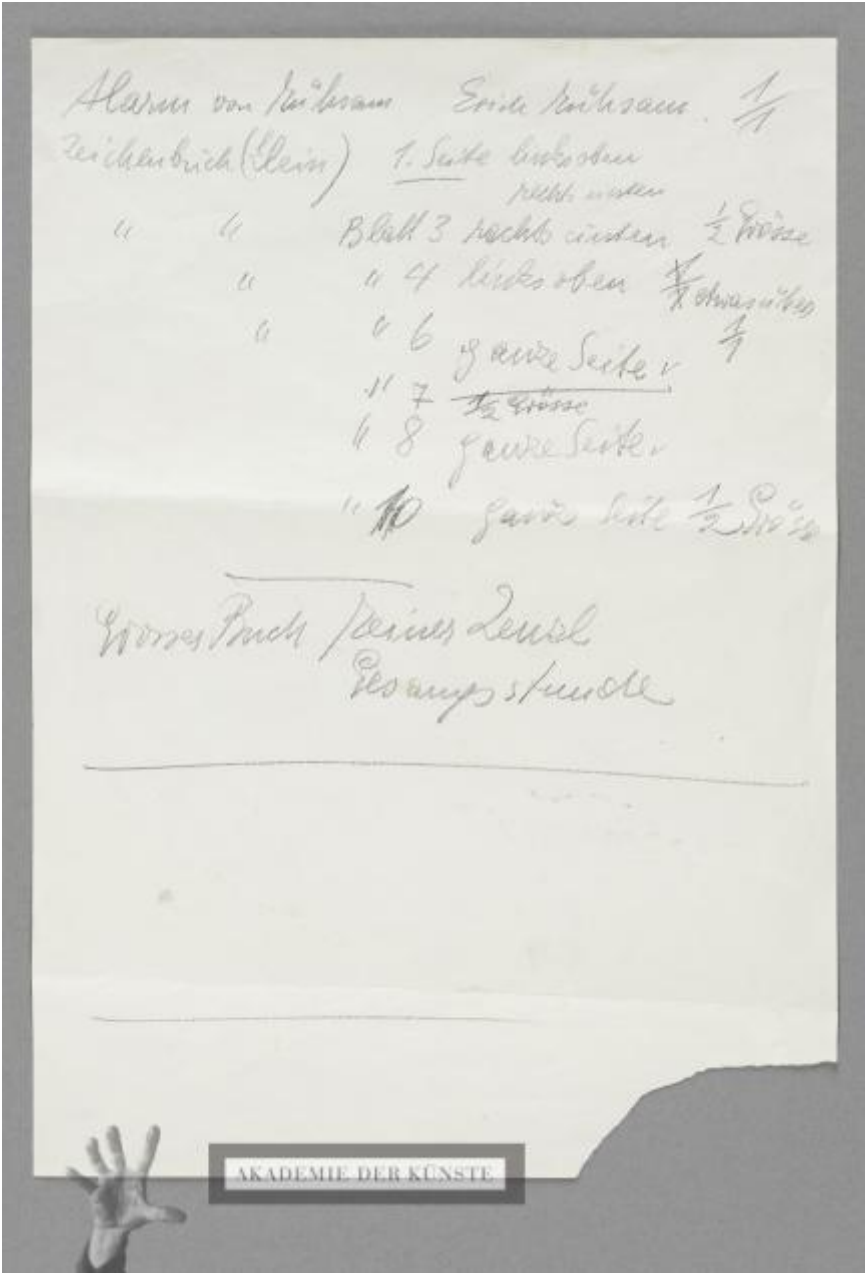 Alarm von Mühsam Erich Mühsam. 1/1
Zeichenbuch (Klein) 1. Seite links oben
rechts unten
" " Blatt 3 rechts unten 1/2 Grösse
" " 4 links oben 1/1 etwas über
" " 6 ganze Seite 1/1
" 7 1/2 Grösse
" 8 ganze Seite
" 10 ganze Seite 1/2 Grösse
Grosses Buch
Gesangsstunde
AKADEMIE DER KÜNSTE